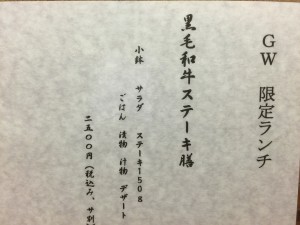 GW 限定ランチ
黒毛和牛ステーキ膳
小鉢 サラダ ステーキ150g
ごはん 漬物 汁物 デザート
二五〇〇円(税込み、サ別)